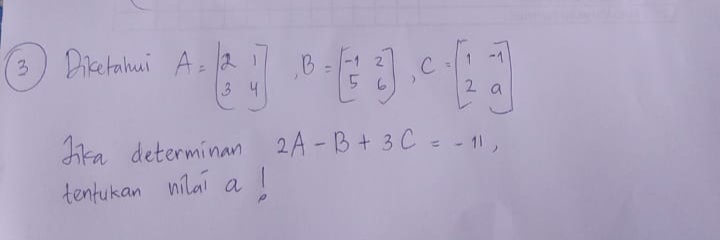 3 Diketahui A = [2 1 3 4], B = [-1 2 5 6], C = [1 -1 2 a]
Jika determinan 2A - B + 3C = -11,
tentukan nilai a !